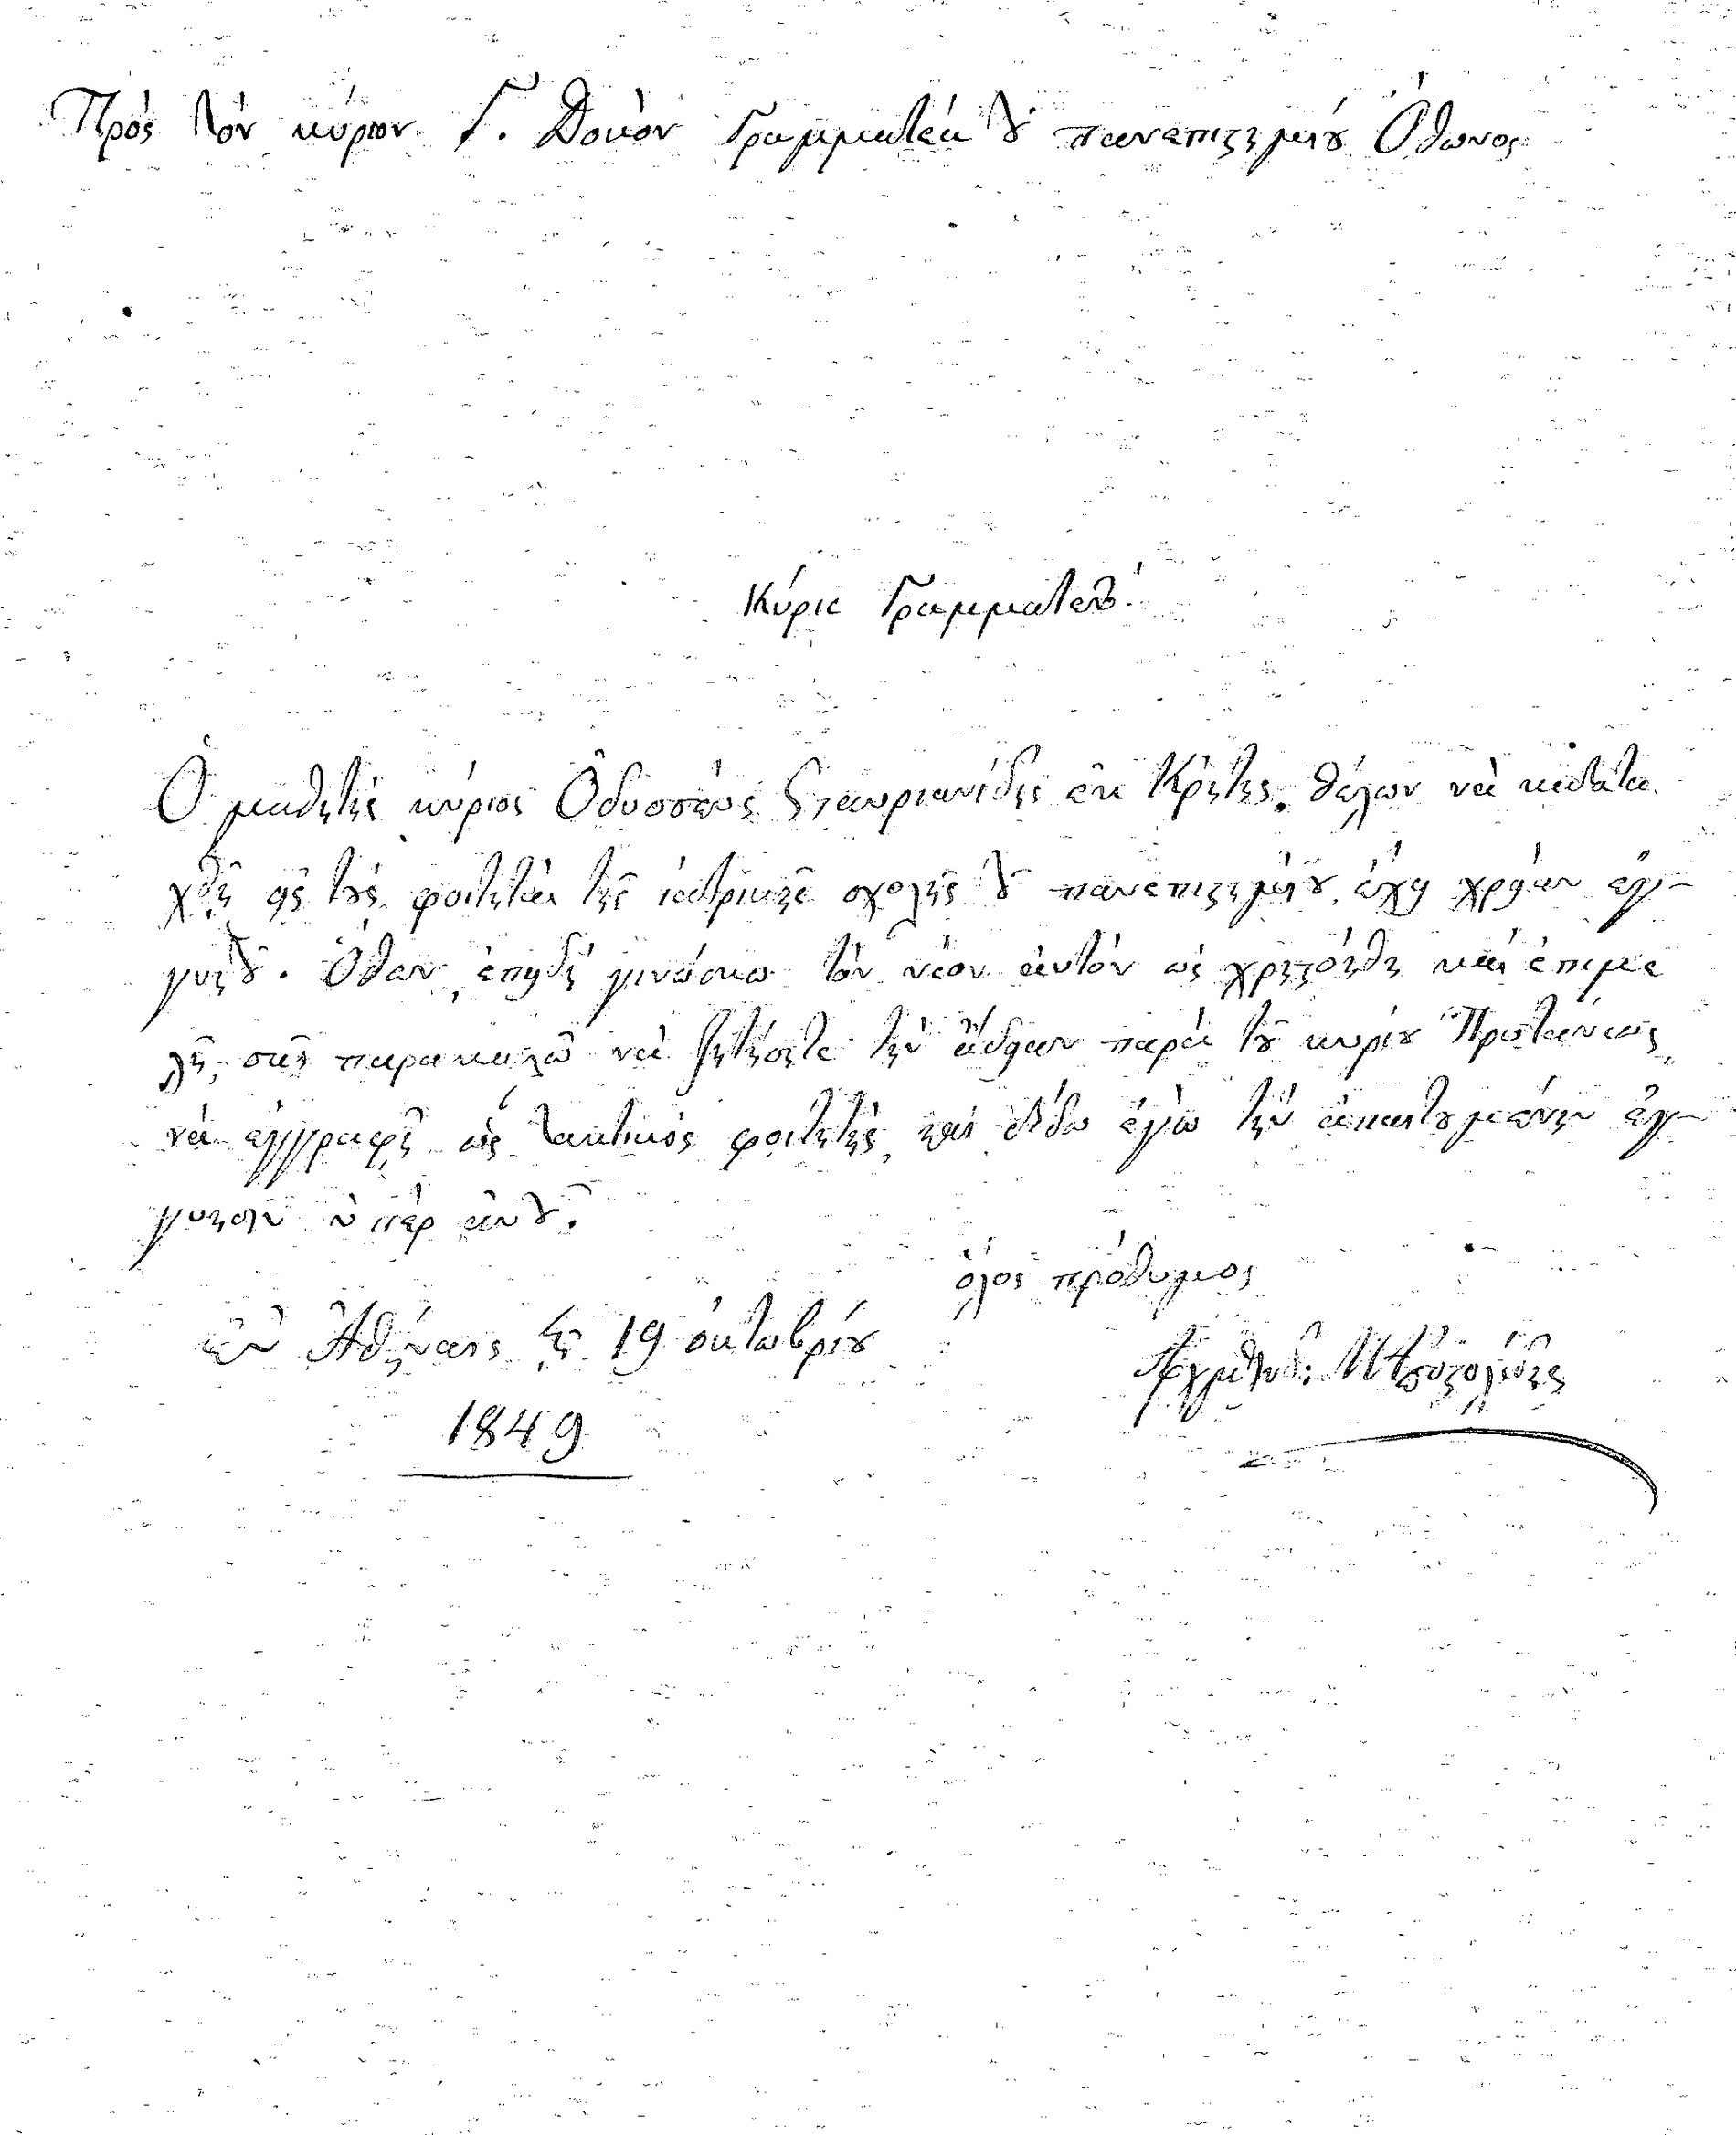 Πρὸς τὸν κύριον Γ. Δοκὸν Γραμματέα τοῦ πανεπιστημίου Ὄθωνος
Κύριε Γραμματεῦ!
Ὁ μαθητὴς κύριος Ὀδυσσεὺς Σταυριανίδης ἐκ Κρήτης, θέλων νὰ καταταχθῇ
εἰς τοὺς φοιτητὰς τῆς ἰατρικῆς σχολῆς τοῦ πανεπιστημίου, ἔχει χρείαν ἐγγυητοῦ.
Ὅθεν, ἐπειδὴ γινώσκω τὸν νέον αὐτὸν ὡς χρηστοήθη καὶ ἐπιμελῆ,
σᾶς παρακαλῶ νὰ ζητήσητε τὴν ἄδειαν παρὰ τοῦ κυρίου Πρυτάνεως,
νὰ ἐγγραφῇ ὡς τακτικὸς φοιτητής, καὶ δίδω ἐγὼ τὴν ἀπαιτουμένην ἐγγύησιν
ὑπὲρ αὐτοῦ.
ὅλος πρόθυμος
ἐν Ἀθήναις τῇ 19 ὀκτωβρίου
1849